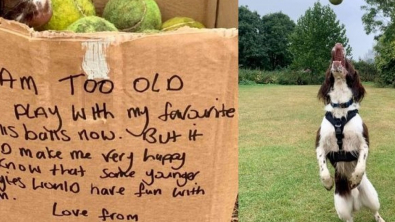 AM TOO OLD
PLAY WITH my favourite
balls now. But it
D make me very happy
know that some younger
gies would have fun with
m.
Love from